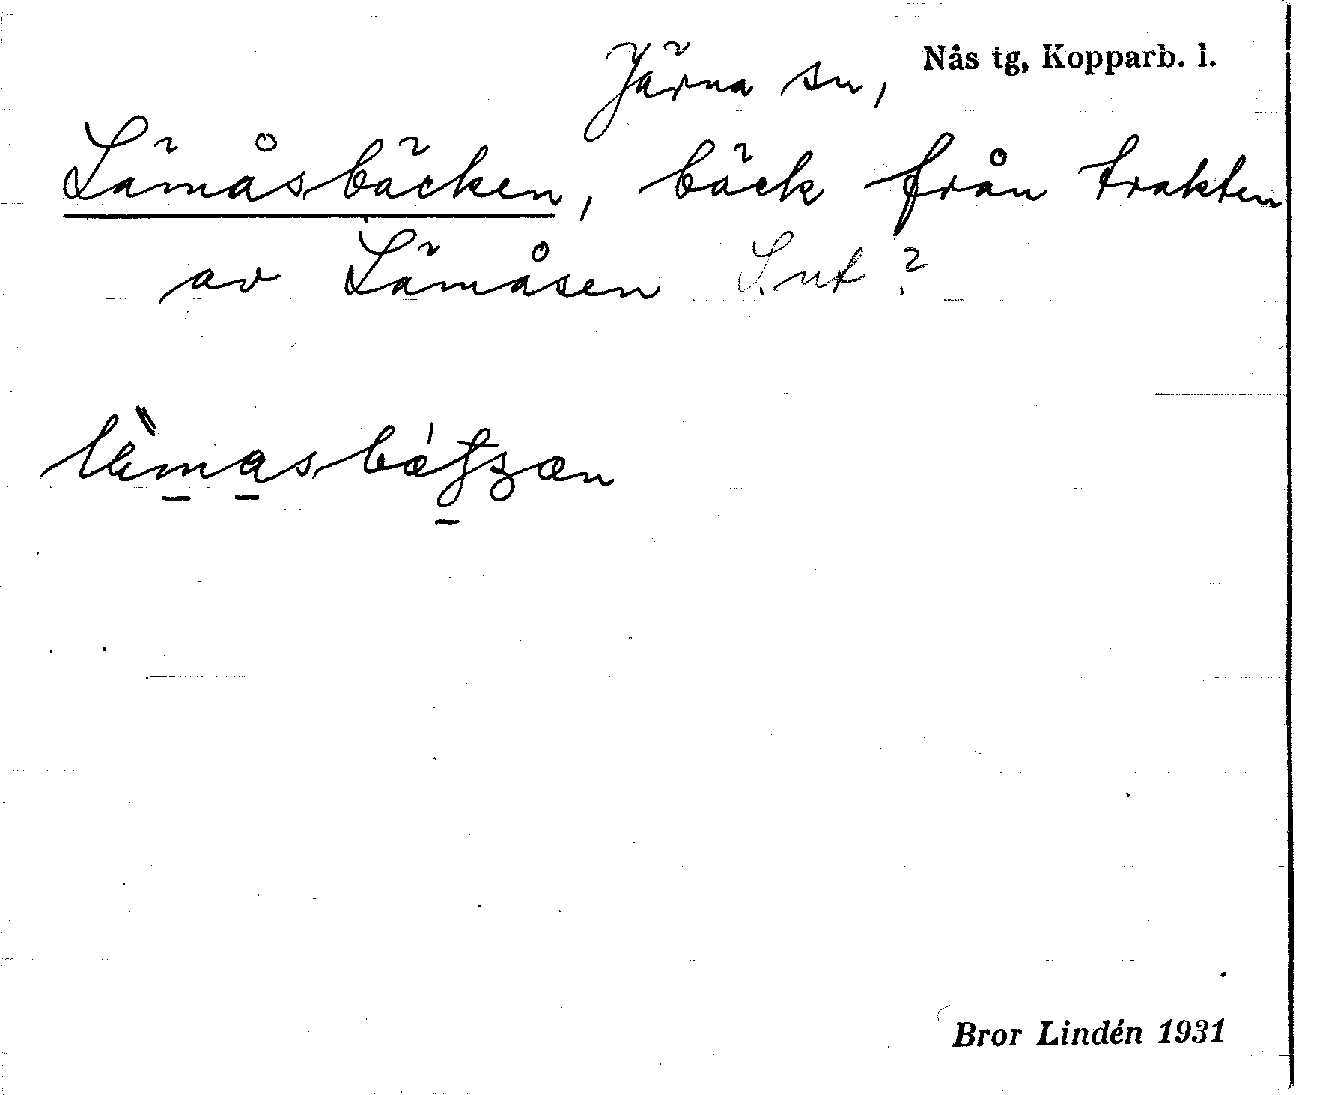 Järna sn, Nås tg, Kopparb. l.
Lämåsbäcken, bäck från trakten
av Lämåsen
Bror Lindén 1931